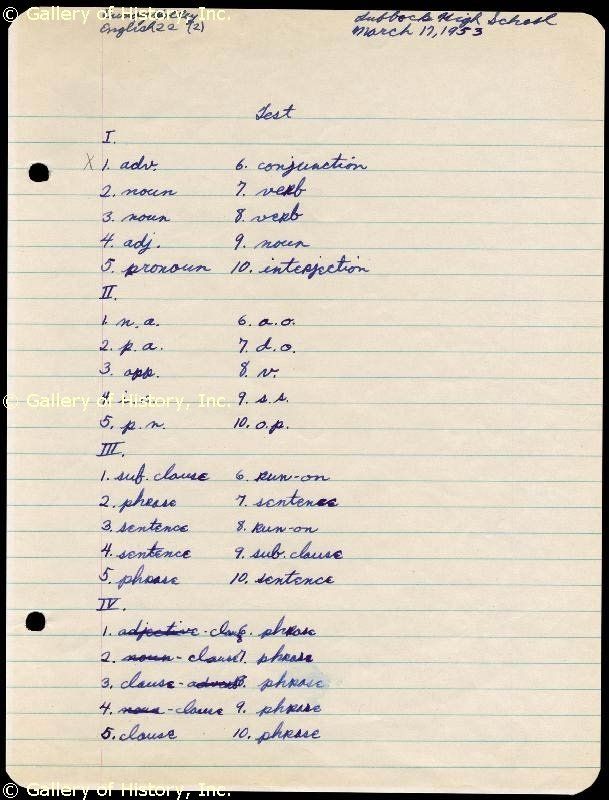 © Gallery of History, Inc.
© Gallery of History, Inc.
English 22 (2)
Lubbock High School
March 17, 1953
Test
I.
X 1. adv. 6. conjunction
2. noun 7. verb
3. noun 8. verb
4. adj. 9. noun
5. pronoun 10. interjection
II.
1. n.a. 6. a.o.
2. p.a. 7. d.o.
3. app. 8. v.
4. 9. s.s.
© Gallery of History, Inc.
5. p.n. 10. o.p.
III.
1. sub. clause 6. run-on
2. phrase 7. sentence
3. sentence 8. run-on
4. sentence 9. sub. clause
5. phrase 10. sentence
IV.
1. adjective-clause 6. phrase
2. noun-clause 7. phrase
3. clause-adverb 8. phrase
4. noun-clause 9. phrase
5. clause 10. phrase
© Gallery of History, Inc.